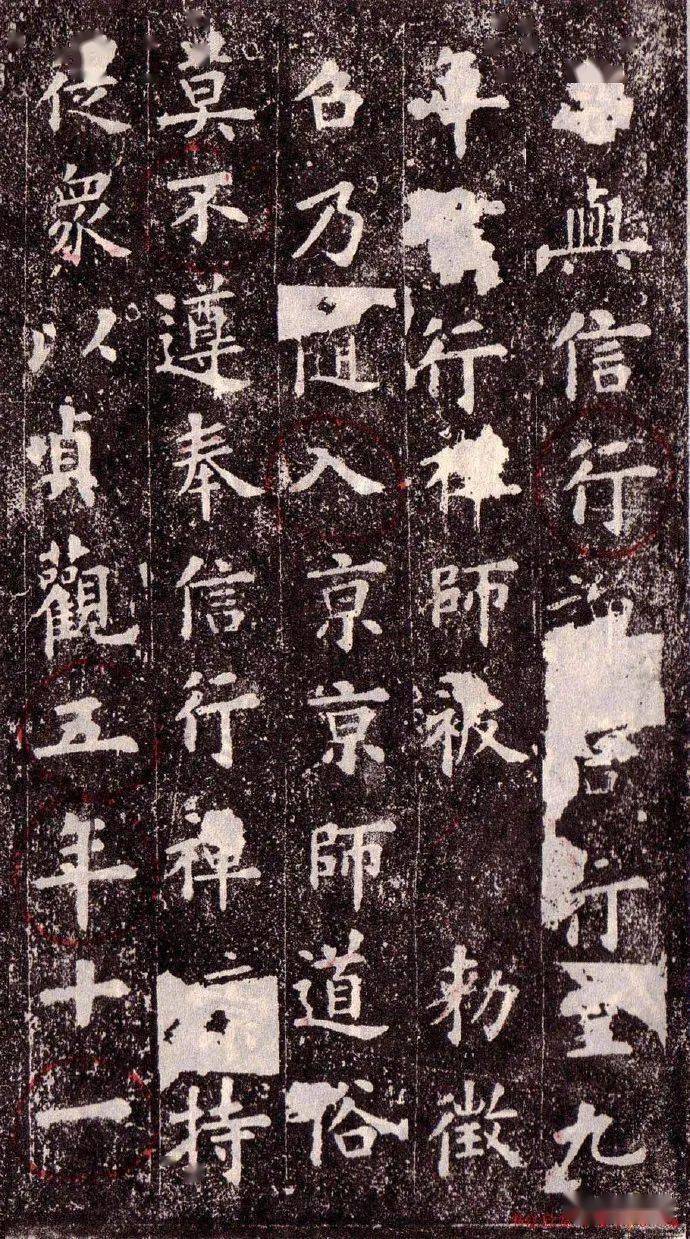 與信行行九
年行禪師被勅徵
召乃隨入京京師道俗
莫不遵奉信行禪宗持
徒衆以貞觀五年十一